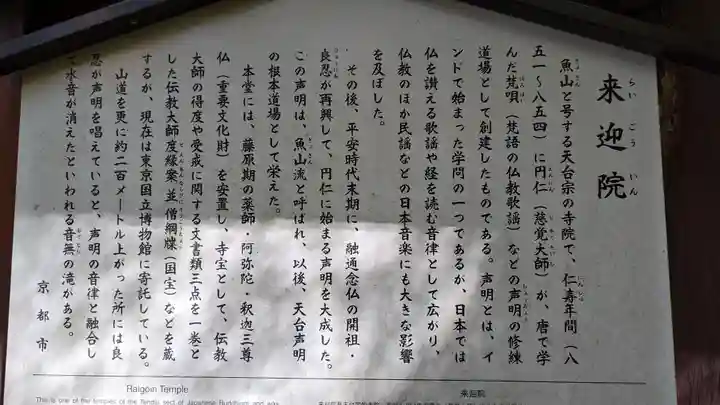 来迎院
らいごういん
魚山と号する天台宗の寺院で、仁寿年間（八
五一～八五四）に円仁（慈覚大師）が、唐で学
んだ梵唄（梵語の仏教歌謡）などの声明の修練
道場として創建したものである。声明とは、イ
ンドで始まった学問の一つであるが、日本では
仏を讃える歌謡や経を読む音律として広がり、
仏教のほか民謡などの日本音楽にも大きな影響
を及ぼした。
その後、平安時代末期に、融通念仏の開祖・
良忍が再興して、円仁に始まる声明を大成した。
この声明は、魚山流と呼ばれ、以後、天台声明
の根本道場として栄えた。
本堂には、藤原期の薬師・阿弥陀・釈迦三尊
仏（重要文化財）を安置し、寺宝として、伝教
大師の得度や受戒に関する文書類三点を一巻と
した伝教大師度縁案並僧綱牒（国宝）などを蔵
するが、現在は東京国立博物館に寄託している。
山道を更に約二百メートル上がった所には良
忍が声明を唱えていると、声明の音律と融合し
て水音が消えたといわれる音無の滝がある。
京都市
Raigoin Temple
This is one of the temples of the Tendai sect of Japanese Buddhism and
来迎院